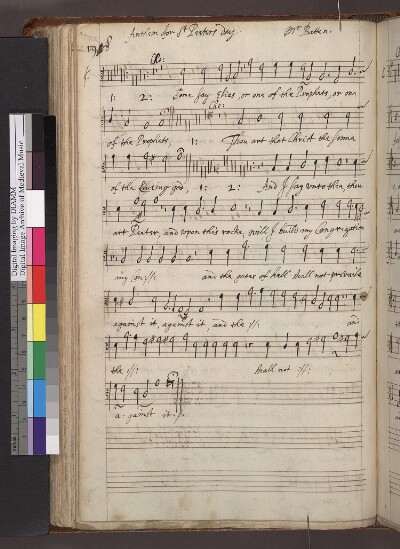 Anthem for St Peeters day. Mr Batten.
Cho:
1: 2: Some say Elias, or one of the Prophets, or one
Cho:
of the Prophets, 1: Thou art that Christ the sonne
of the Liveing god, 1: 2: And I say unto thee, thou
art Peeter, and upon this rocke, will I build my Congregation
my con :||: and the gates of hell shall not prevaile
against it, against it, and the :||: and
the :||: shall not :||:
a-gainst it.
Digital Imaging by DIAMM
Digital Image Archive of Medieval Music